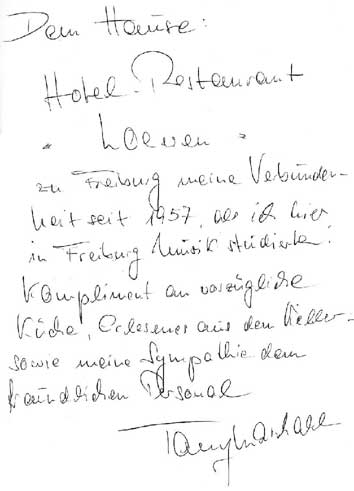 Dem Hause:
Hotel-Restaurant
" Loewen "
zu Freiburg meine Verbunden-
heit seit 1957, als ich hier
in Freiburg Musik studierte!
Kompliment an vorzügliche
Küche, Erlesenes aus dem Keller -
sowie meine Sympathie dem
freundlichen Personal
Tony Marshall